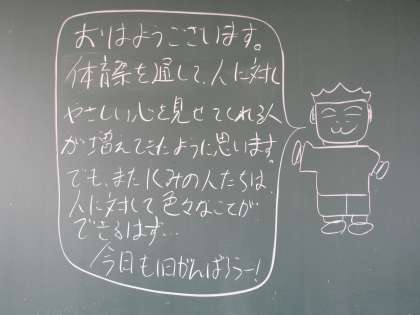 おはようございます。
体育祭を通して、人に対し
やさしい心を見せてくれる人
が増えてきたように思います。
でも、まだくみの人たちは、
人に対して色々なことが
できるはず…
今日も1日がんばろうー!